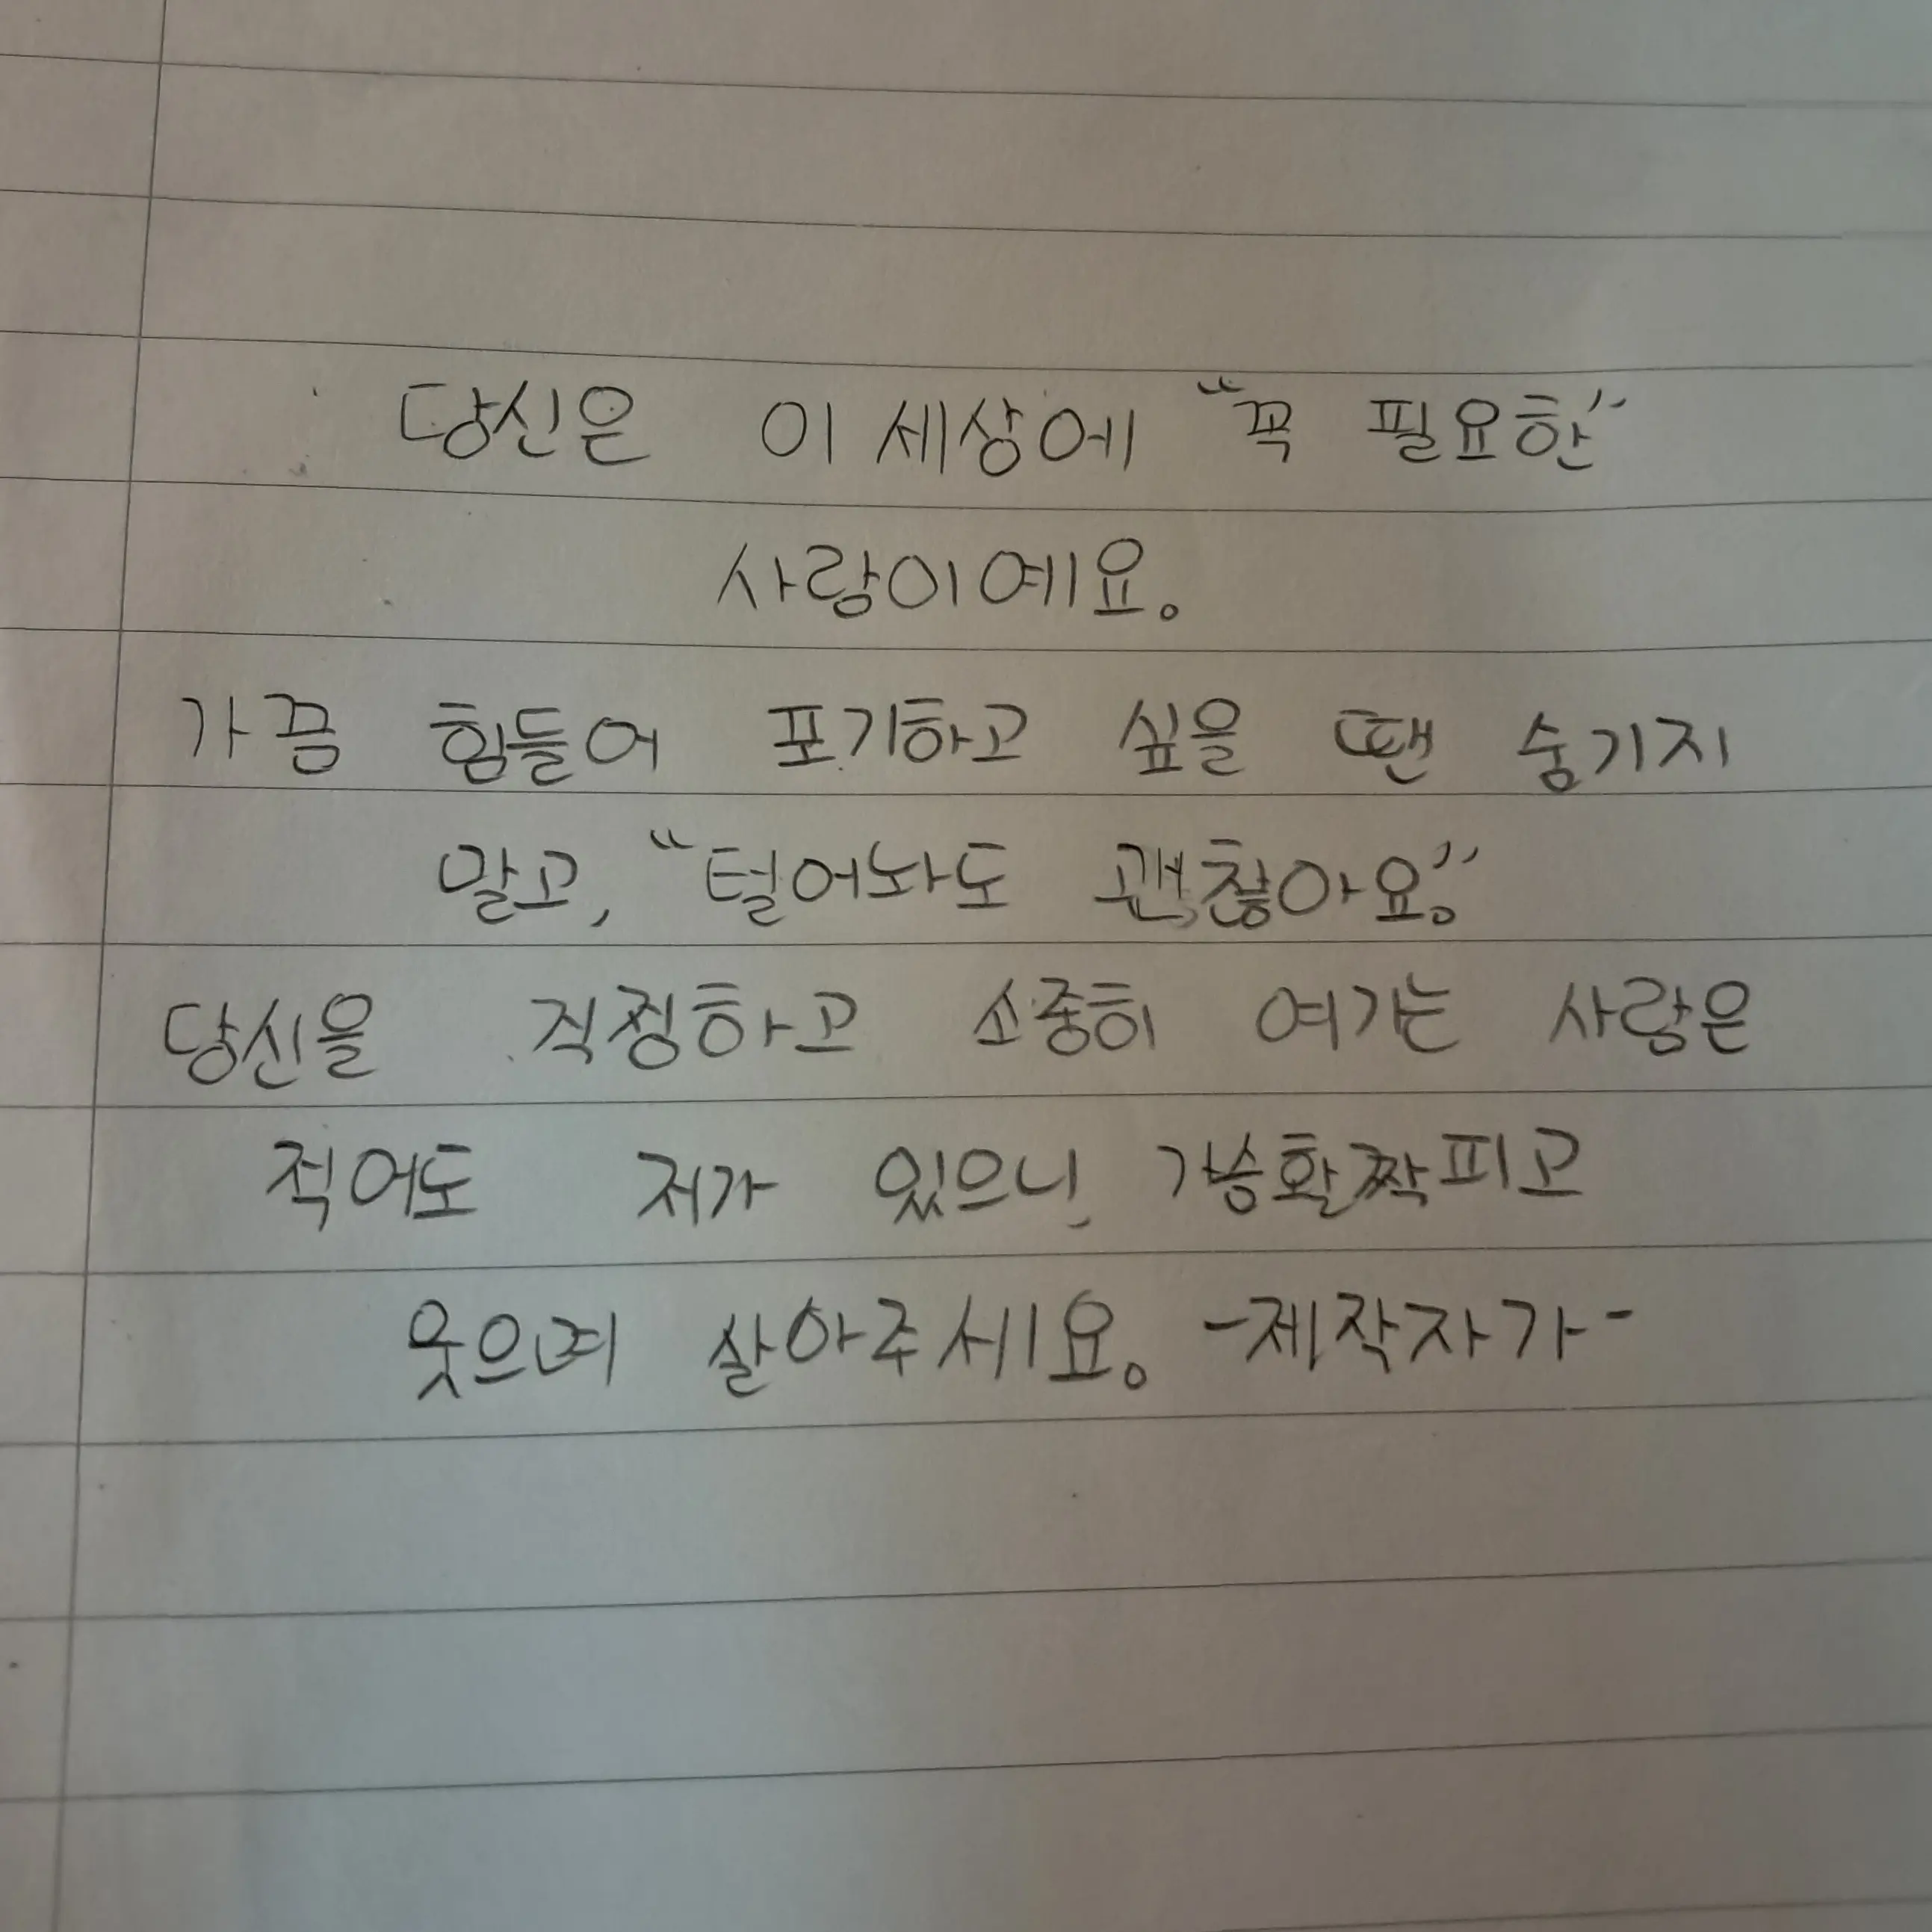 당신은 이 세상에 "꼭 필요한"
사람이예요.
가끔 힘들어 포기하고 싶을 땐 숨기지
말고, "털어놔도 괜찮아요."
당신을 걱정하고 소중히 여기는 사람은
적어도 저가 있으니, 가슴활짝피고
웃으며 살아주세요. -제작자가-